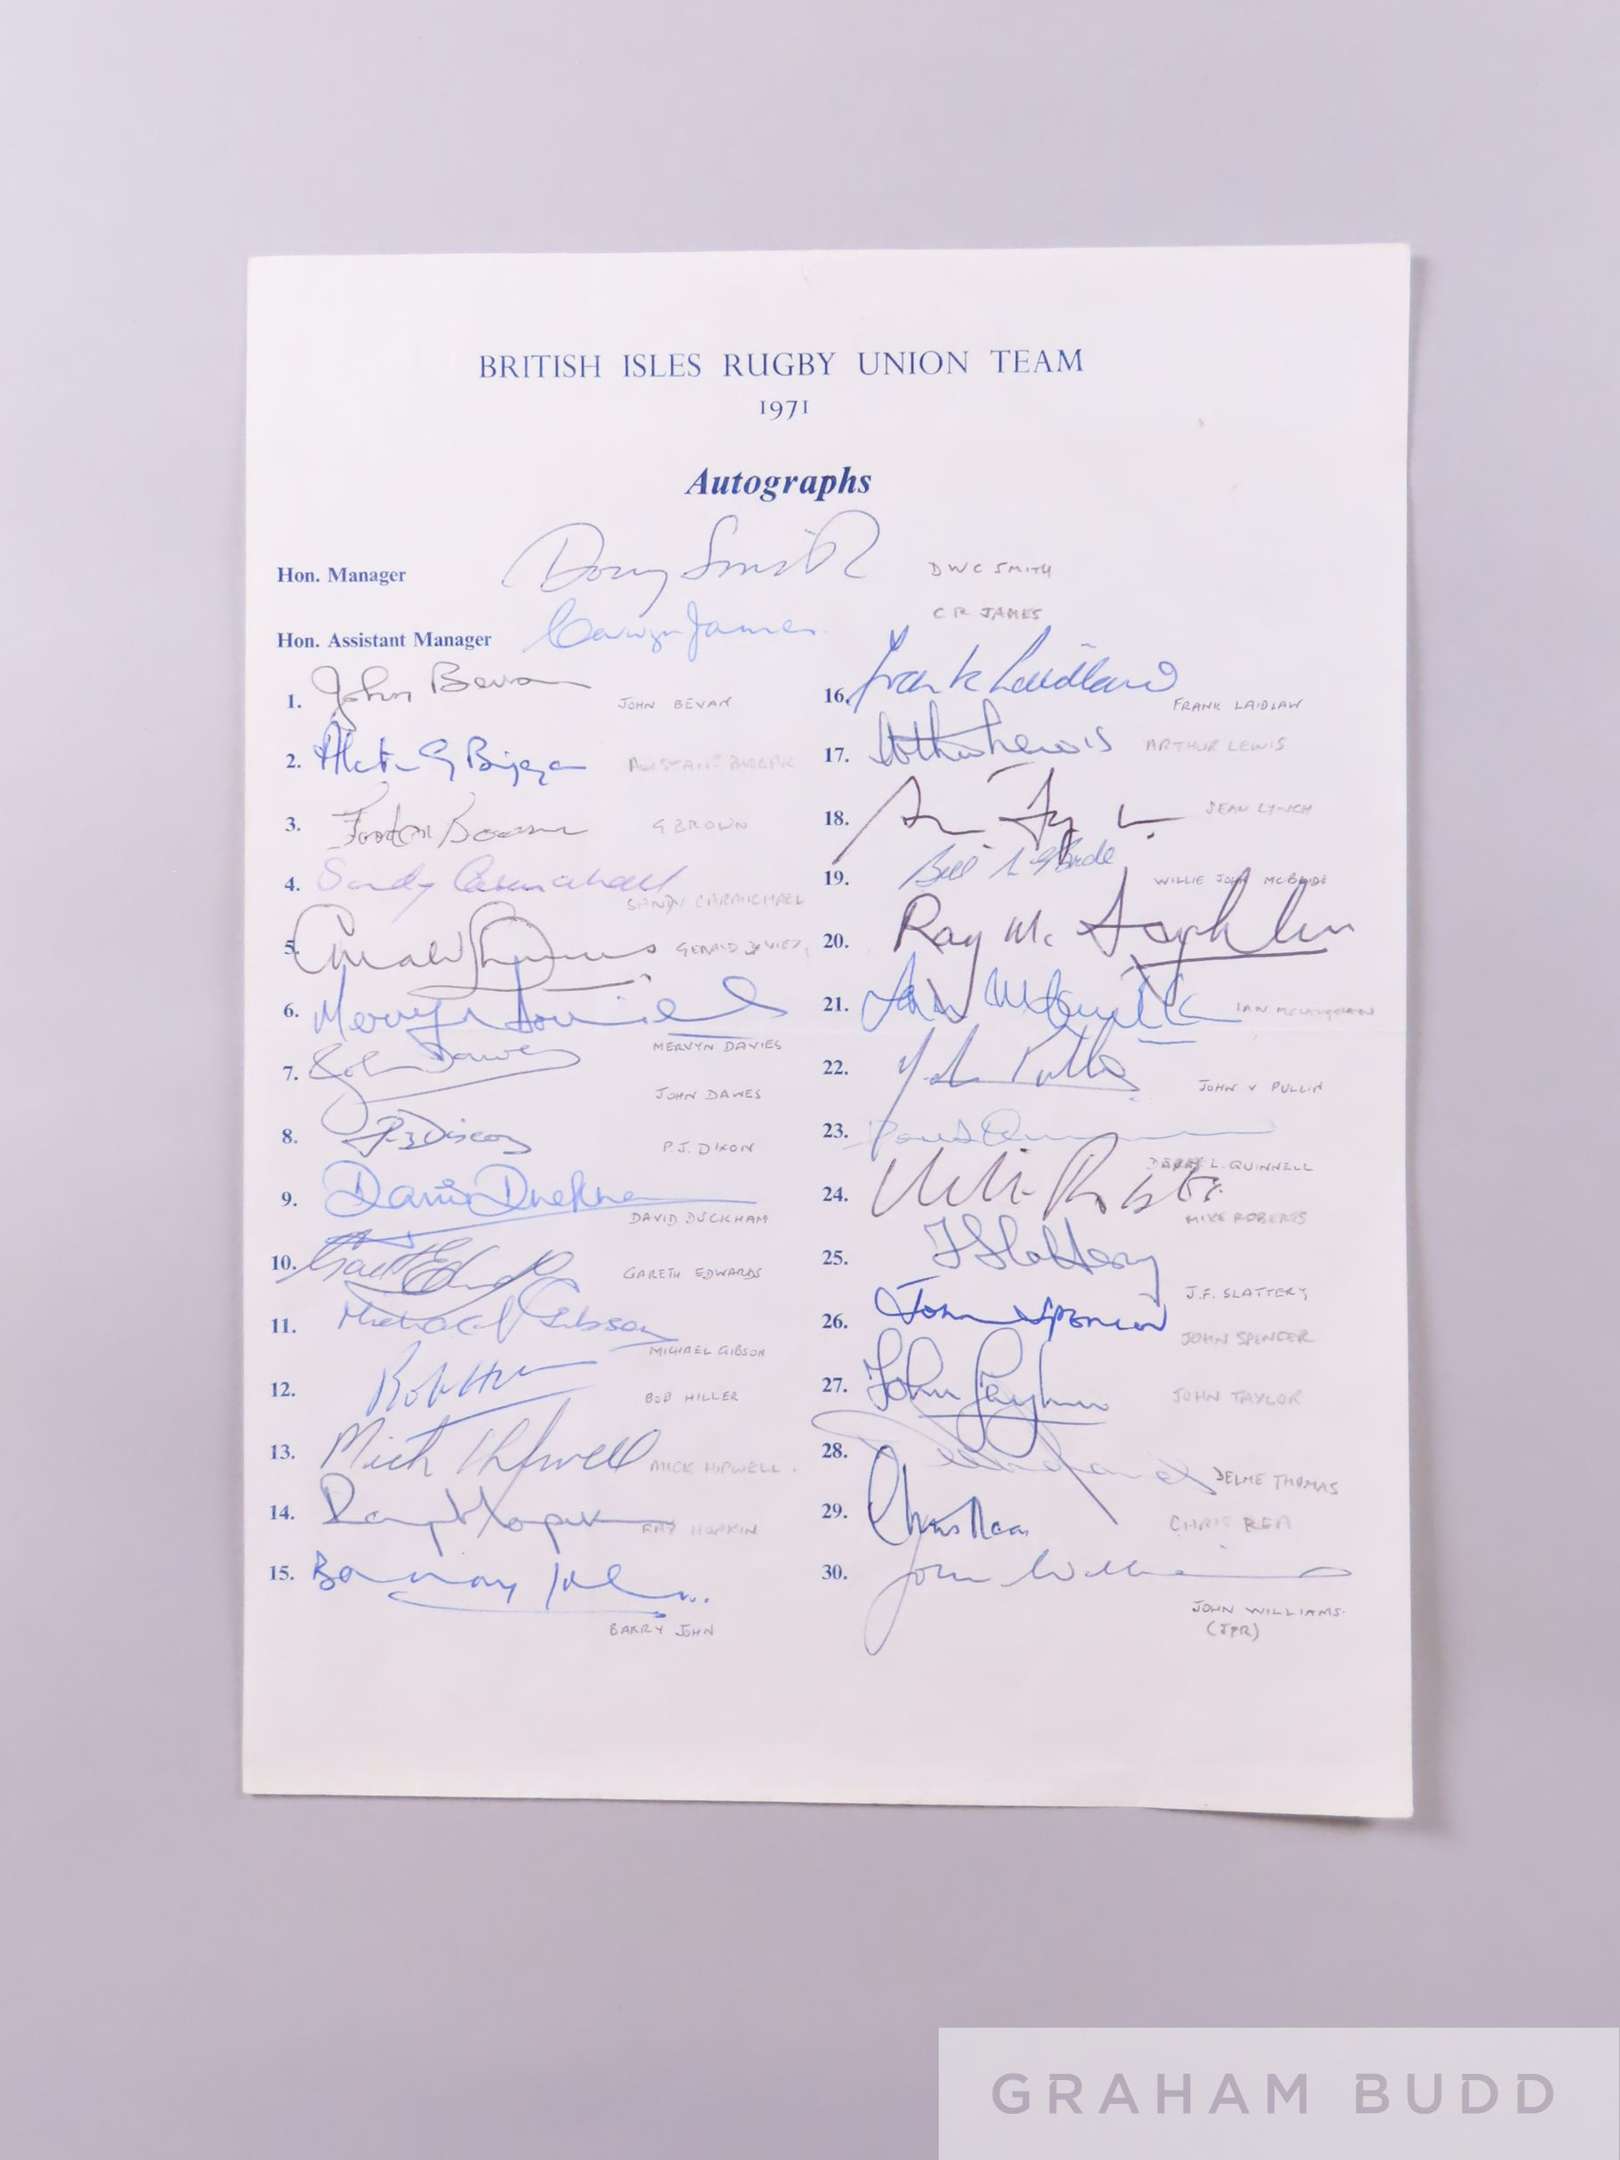 BRITISH ISLES RUGBY UNION TEAM
1971
Autographs
Hon. Manager Doug Smith DWC SMITH
Hon. Assistant Manager Carwyn James C R JAMES
1. John Bevan JOHN BEVAN
2.
3. G BROWN
4. Sandy Carmichael SANDY CARMICHAEL
5. Gerald Davies GERALD DAVIES
6. Mervyn Davies MERVYN DAVIES
7. John Dawes JOHN DAWES
8. P.J. DIXON
9. David Duckham DAVID DUCKHAM
10. Gareth Edwards GARETH EDWARDS
11. Michael Gibson MICHAEL GIBSON
12. Bob Hiller BOB HILLER
13. Mick Hipwell MICK HIPWELL.
14. Ray Hopkin RAY HOPKIN
15. Barry John BARRY JOHN
16. Frank Laidlaw FRANK LAIDLAW
17. Arthur Lewis ARTHUR LEWIS
18. SEAN LYNCH
19. Bill McBride WILLIE JOHN MCBRIDE
20. Ray Mc Loughlin
21. IAN MCLAUCHLAN
22. John Pullin JOHN V PULLIN
23. L. QUINNELL
24. Mike Roberts MIKE ROBERTS
25. J F Slattery J.F. SLATTERY
26. John Spencer JOHN SPENCER
27. John Taylor JOHN TAYLOR
28. DELME THOMAS
29. Chris Rea CHRIS REA
30. John Williams JOHN WILLIAMS.
(JPR)
GRAHAM BUDD